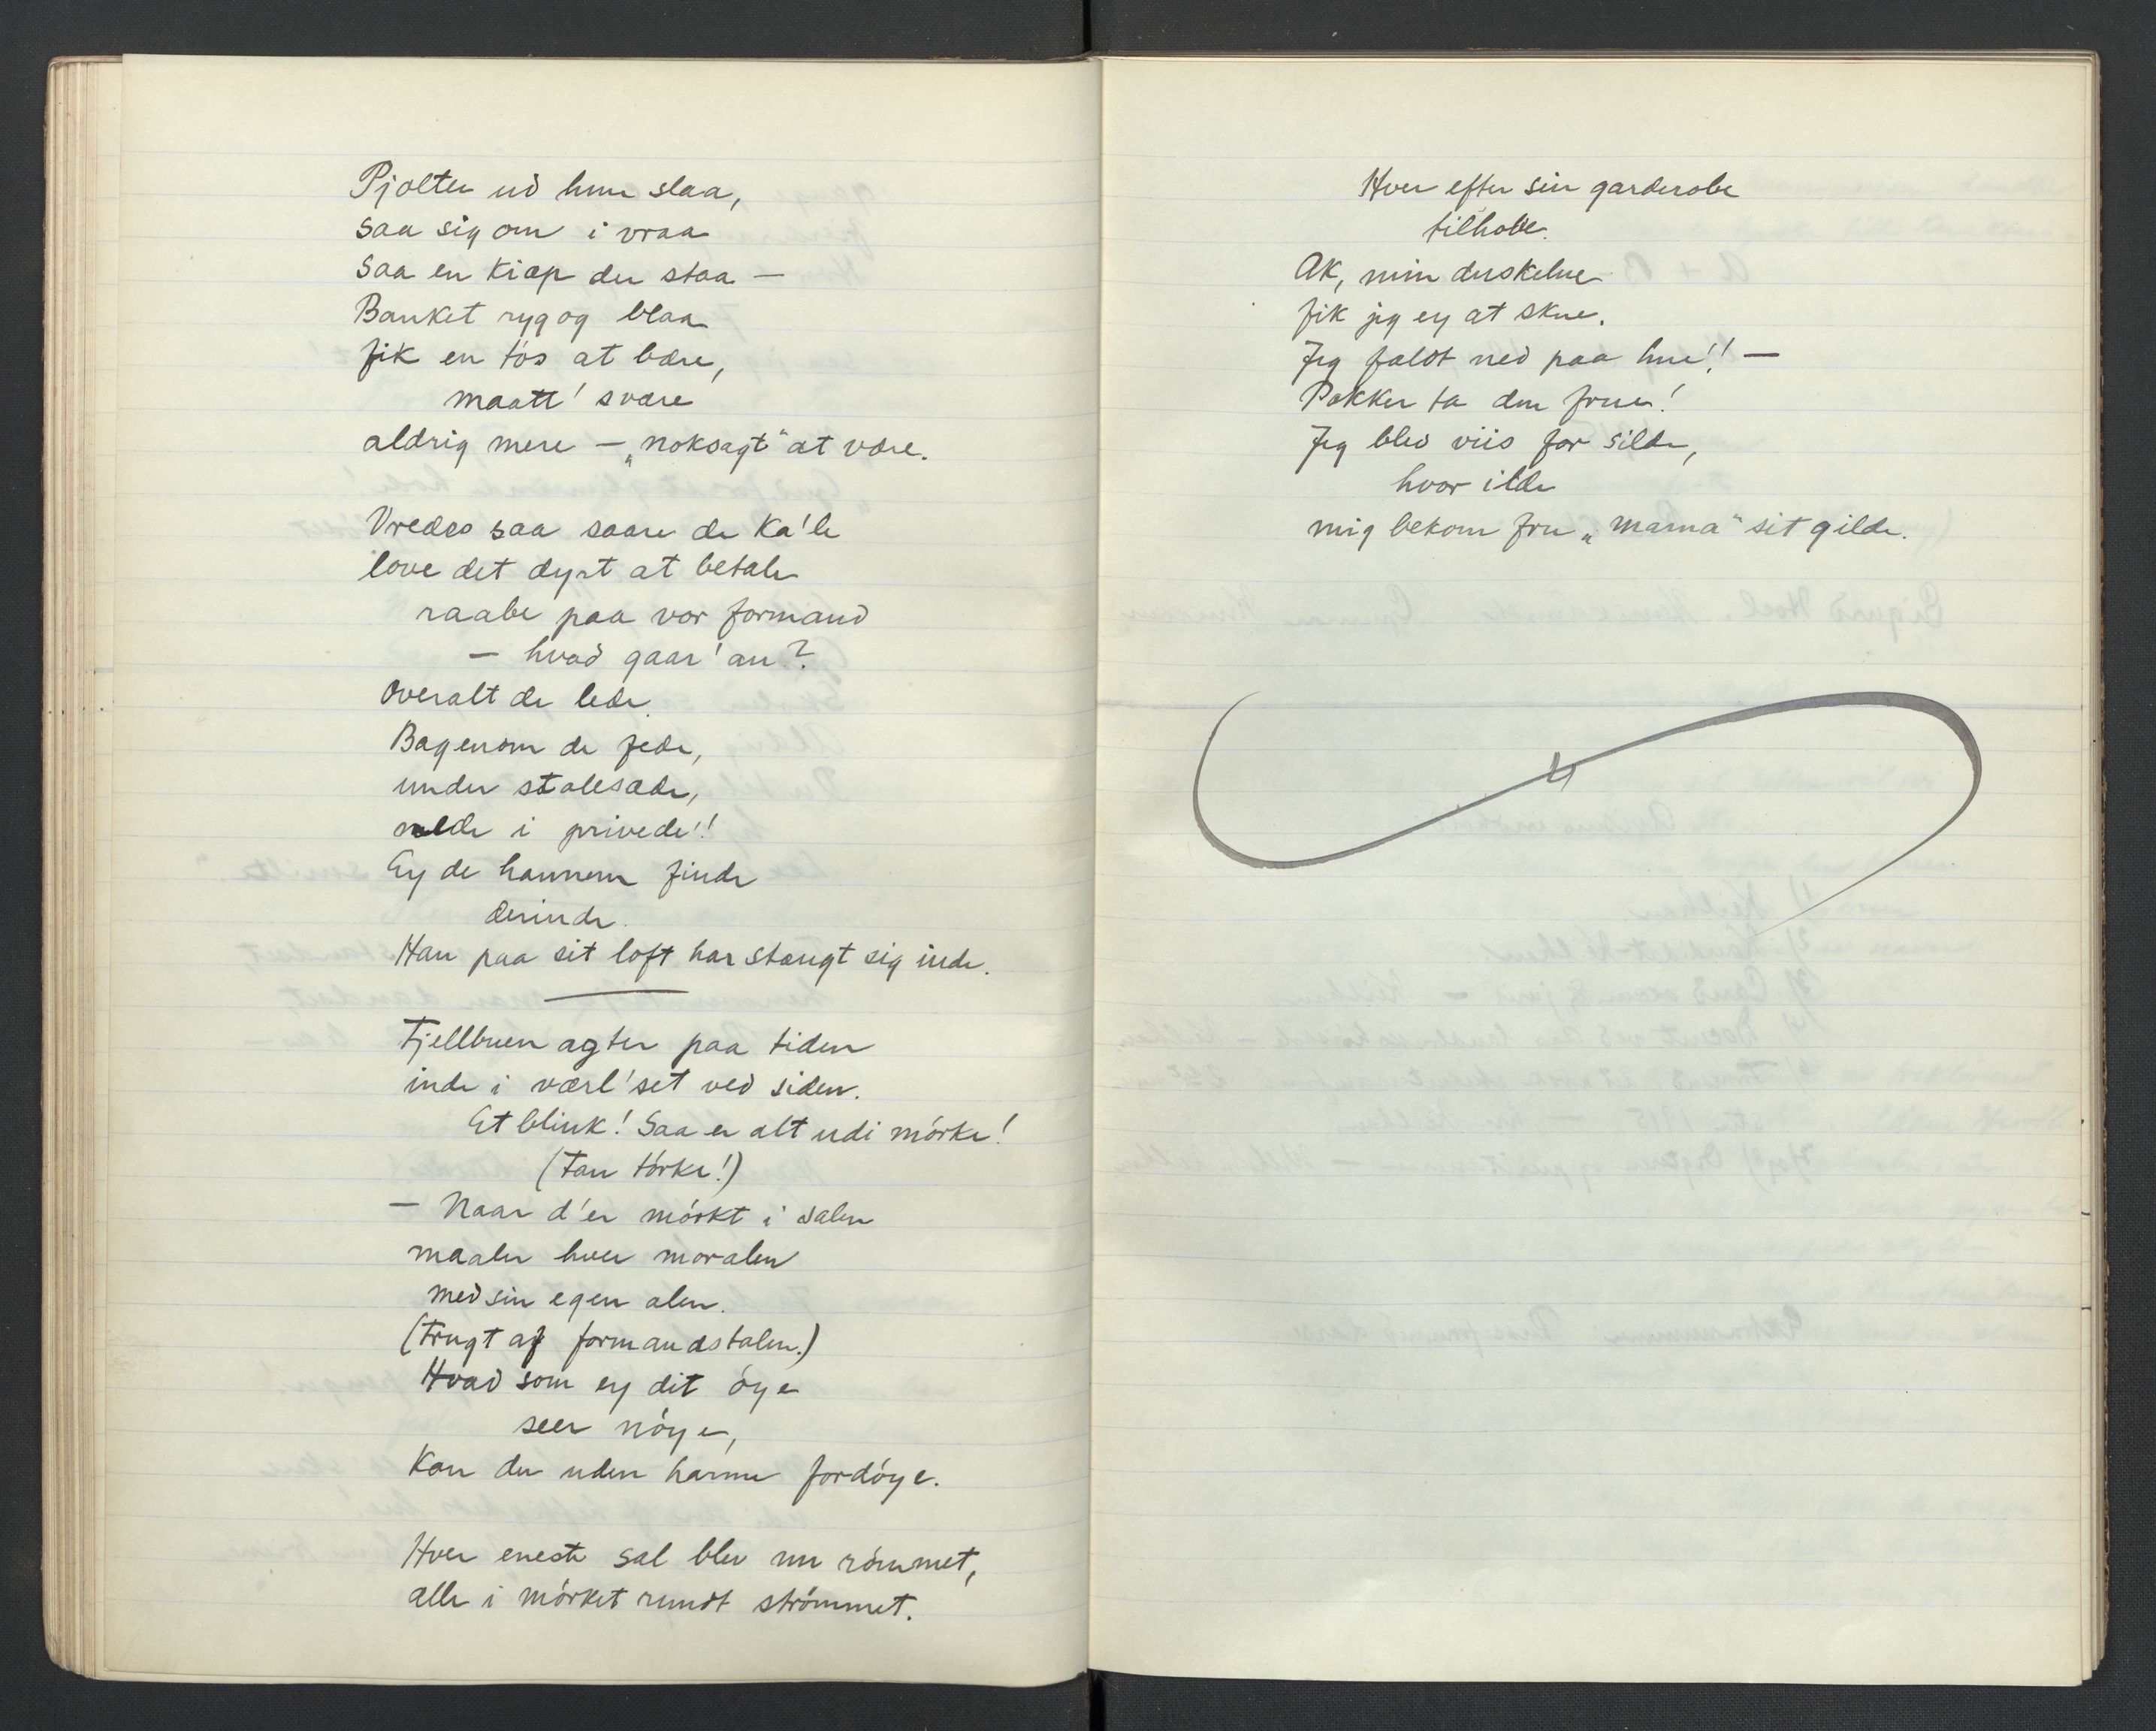 Pjolten ud hun slaa,
saa sig om i vraa
saa en kiæp der staa —
Banket ryg og blaa
fik en tös at bære,
maatt' svære
aldrig mere — „noksagt“ at være.
Vredes saa saare de Ka'le
love det dyrt at betale
raabe paa vor formand
— hvad gaar' an?
Overalt de lede
Bagenom de fede,
under stolesæde,
nede i privede!!
Ey de hannem finde
derinde.
Han paa sit loft har stængt sig inde.
Fjellbuen agter paa tiden
inde i værl'set ved siden.
Et blink! Saa er alt udi mörke!
(Fan törke!)
— Naar d'er mörkt i salen
maaler hver moralen
med sin egen alen.
(Frugt af formandstalen.)
Hvad som ey dit öye
seer nöye,
Kan du uden harme fordöye.
Hver eneste sal blev nu römmet,
alle i mörket rundt strömmet.
Hver efter sin garderobe
tilhobe.
Ak, min duskelue
fik jeg ey at skue.
Jeg faldt ned paa hue!! —
Pokker ta den frue!
Jeg blev viis for silde,
hvor ilde
mig bekom fru „mama“ sit gilde.